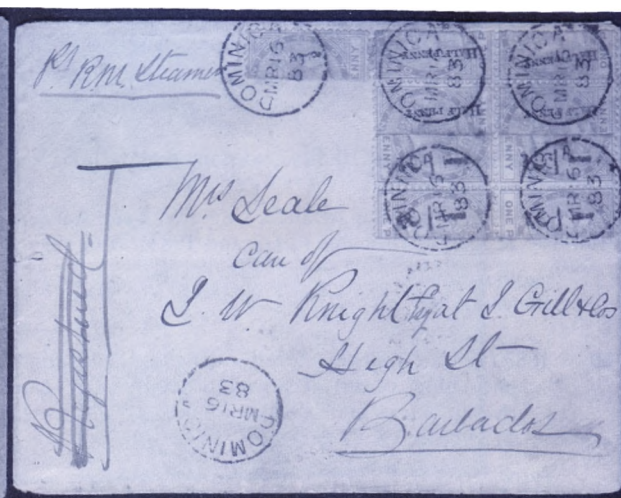 Pr R.M. Steamer
DOMINICA
MR 16
83
DOMINICA
MR 16
83
DOMINICA
MR 16
83
HALF PENNY
HALF PENNY
DOMINICA
MR 16
83
DOMINICA
MR 16
83
PENNY
ONE P
Registered
Mrs Seale
care of
J. W Knight Esq at J. Gill & Cos
High St
Barbados
DOMINICA
MR 16
83